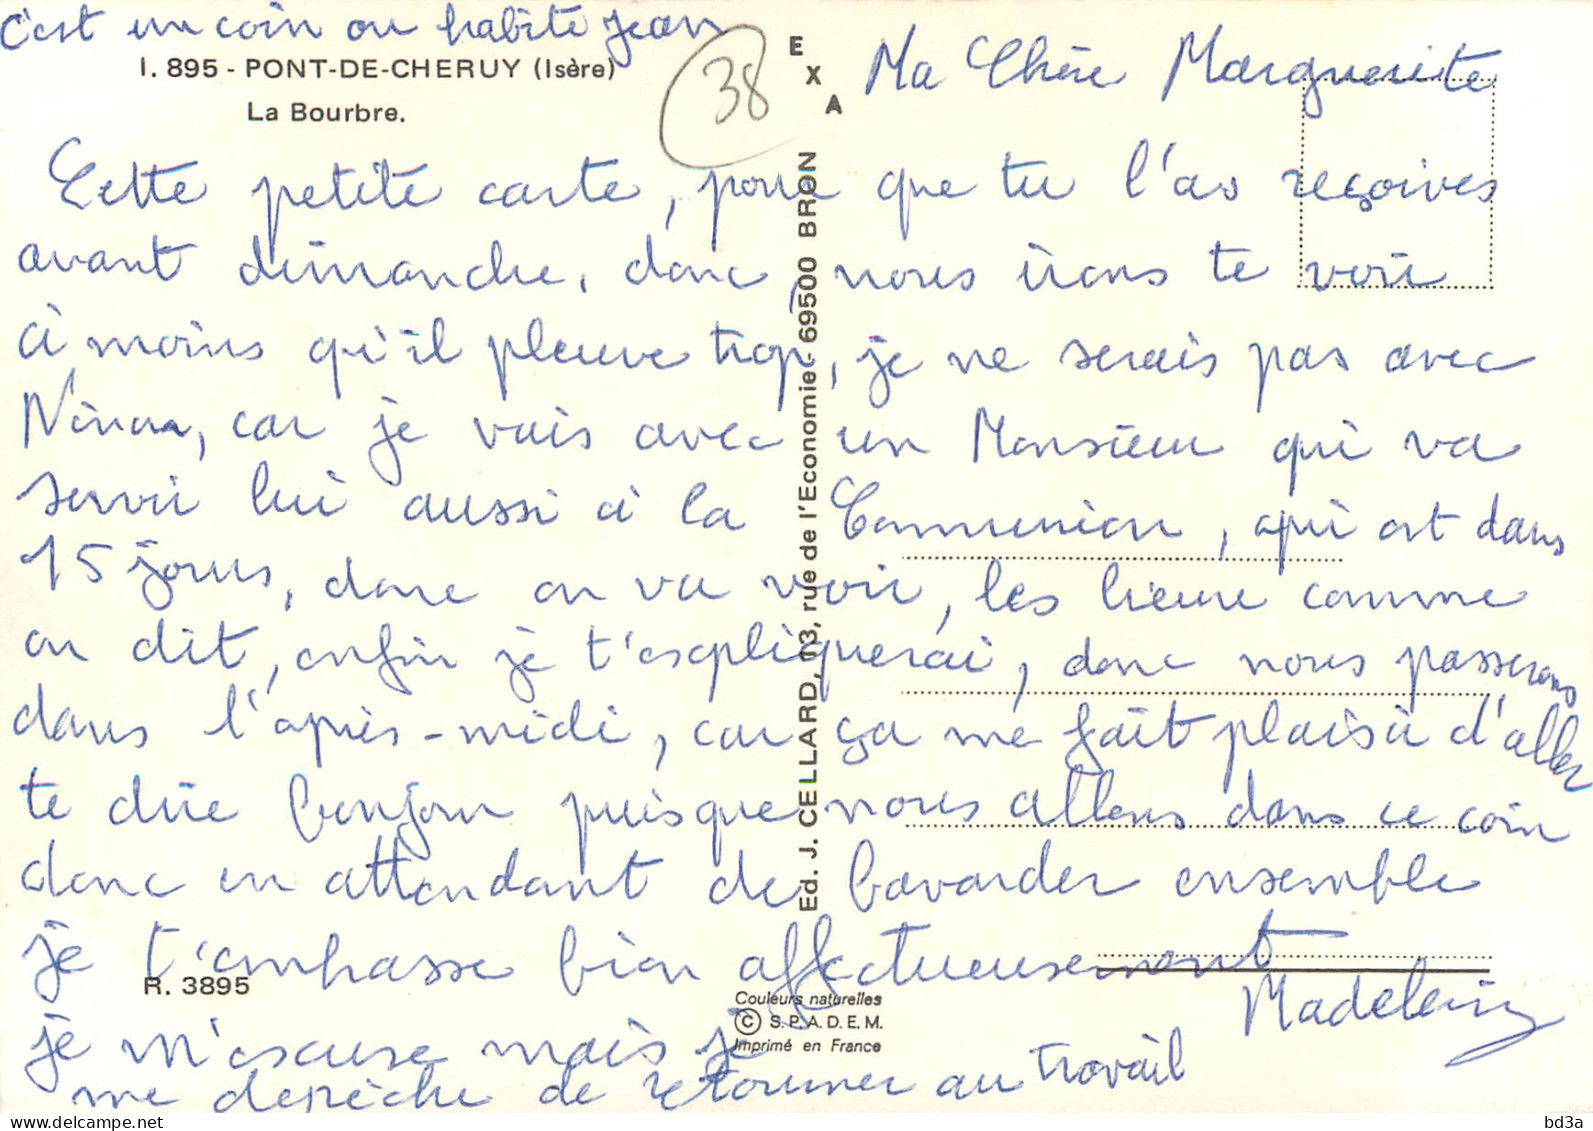 c'est un coin ou habite Jean
I. 895 - PONT-DE-CHERUY (Isère)
La Bourbre.
38
E
X
A
Ma Chère Marguerite
Cette petite carte, pour que tu l'as reçoives
avant dimanche, donc, nous irons te voir
à moins qu'il pleuve trop, je ne serais pas avec
car je vais avec un Monsieur qui va
servir lui aussi à la Communion, qui est dans
15 jours, donc on va voir, les lieux comme
on dit, enfin je t'expliquerai, donc nous passerons
dans l'après-midi, car ça me fait plaisir d'aller
te dire bonjour puisque nous allons dans ce coin
donc en attendant de bavarder ensemble
je t'embrasse bien affectueusement
Madeleine
je m'excuse mais je
me depèche de retourner au travail
R. 3895
Ed. J. CELLARD, 13, rue de l'Economie - 69500 BRON
Couleurs naturelles
© S.P.A.D.E.M.
Imprimé en France
delcampe.net
bd3a